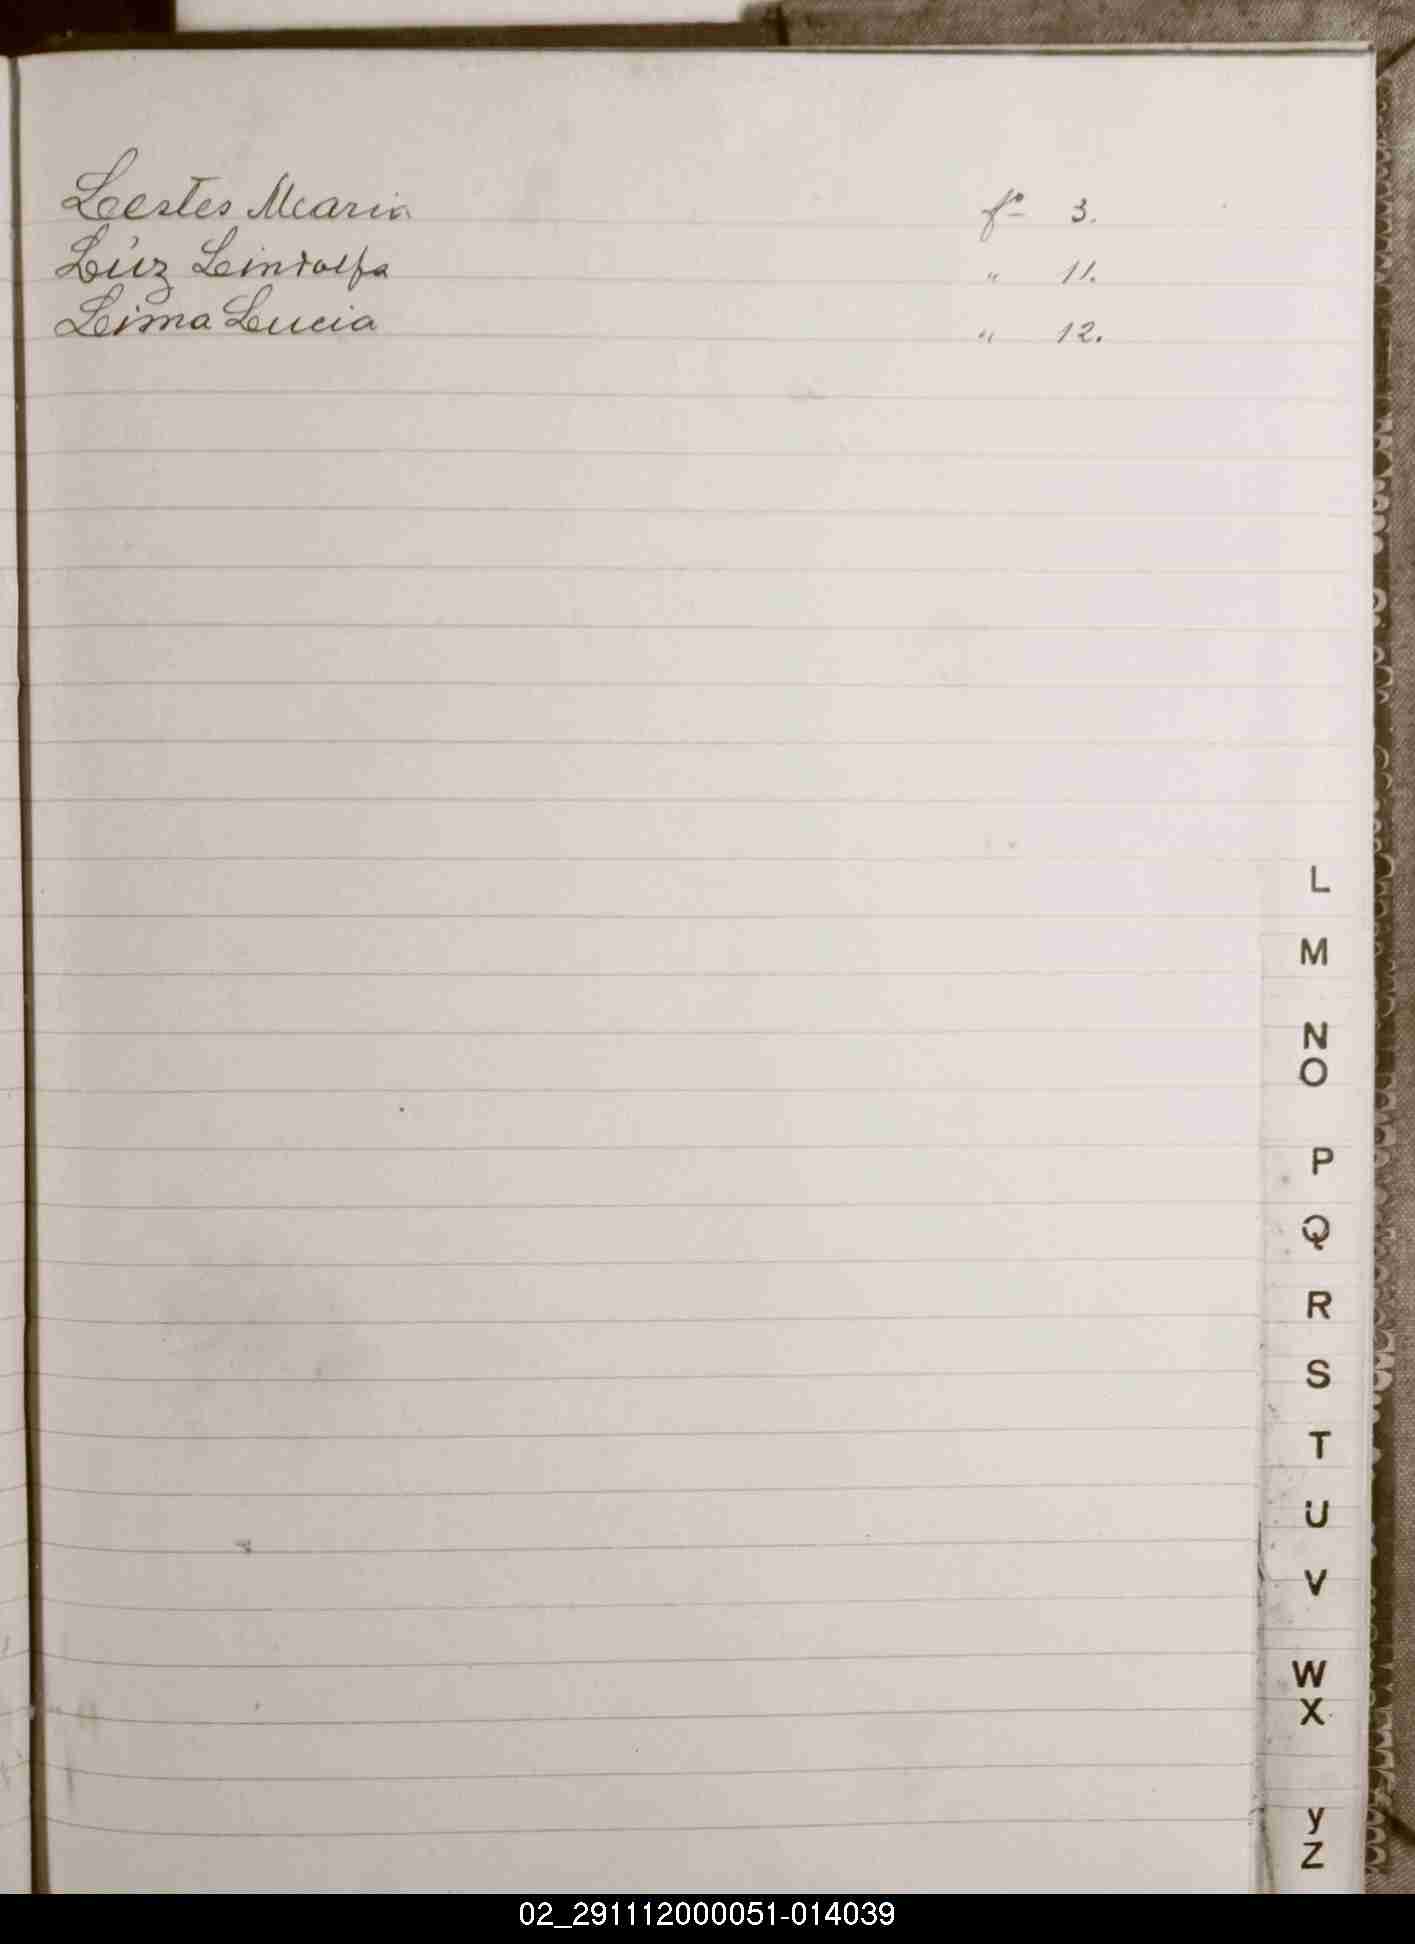 Lestes Maria fº 3.
Lúz Lindolfa " 11.
Lima Lucia " 12.
L
M
N
O
P
Q
R
S
T
U
V
W
X
y
Z
02_291112000051-014039